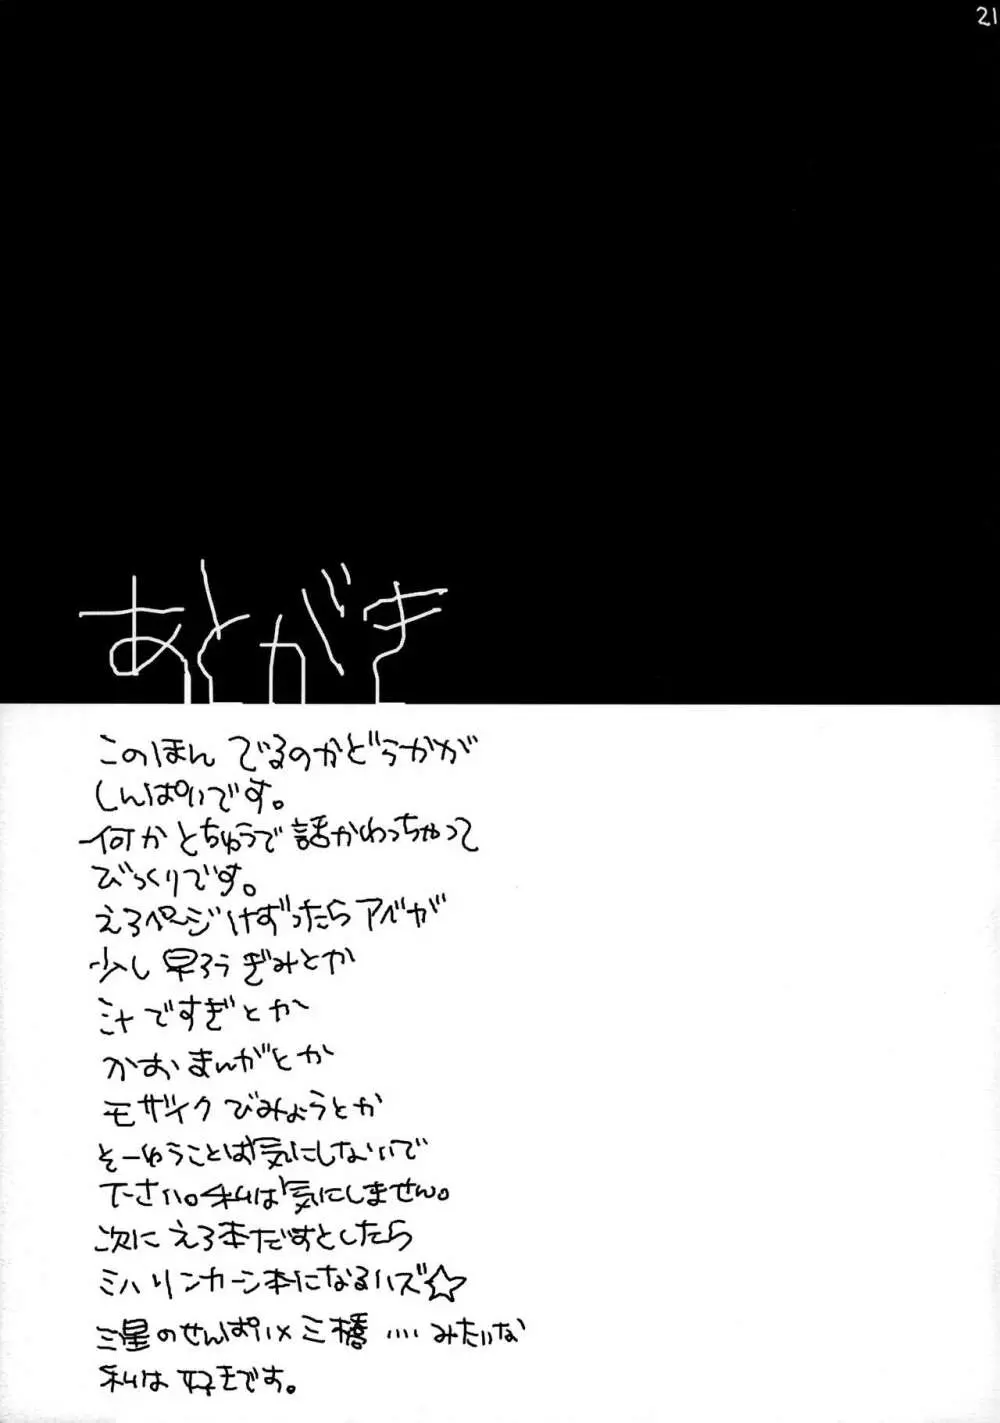 21
あとがき
このほん でるのかどうかが
しんぱいです。
何か とちゅうで 話かわっちゃって
びっくりです。
えろページけずったらアベが
少し 早ろうぎみとか
汁ですぎとか
かおまんがとか
モザイクびみょうとか
そーゆうことは気にしないで
下さい。私は気にしません。
次に えろ本だすとしたら
ミハリンカーン本になるハズ☆
三星のせんぱい×三橋 ‥‥みたいな
私は好きです。